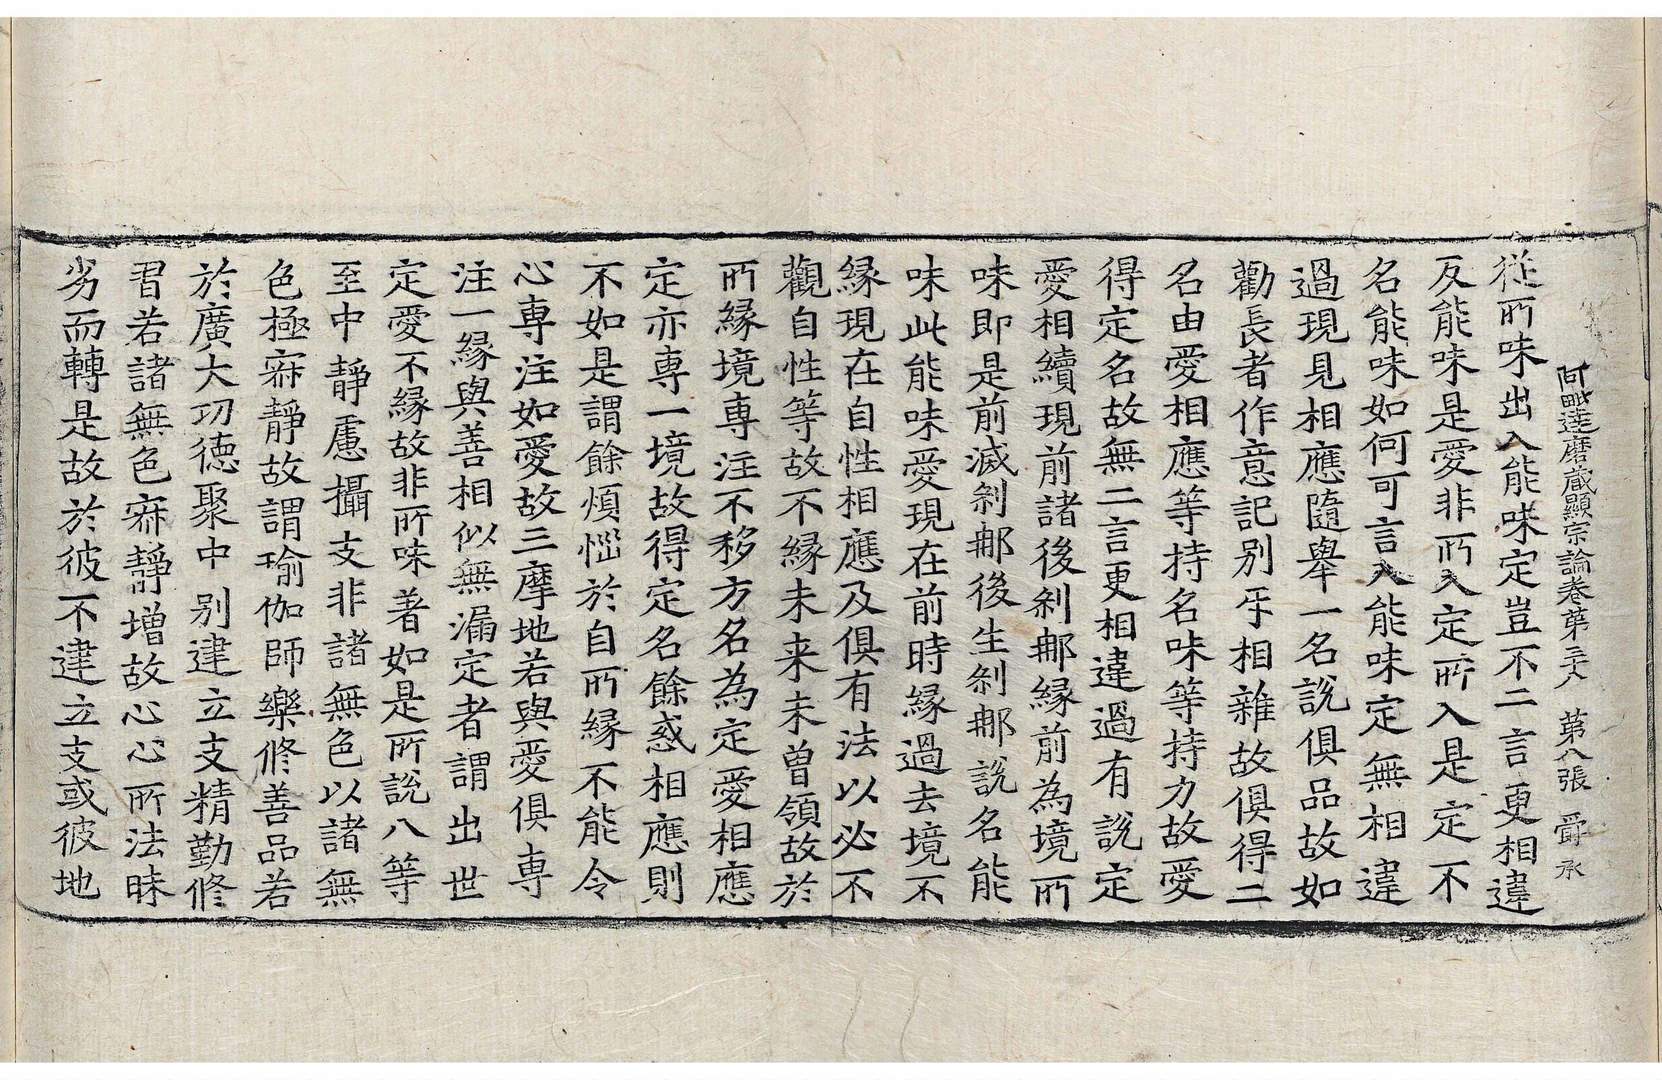 阿毗達磨藏顯宗論卷第三十八 第八張 爵承
從所味出入能味定豈不二言更相違
反能味是愛非所入定所入是定不
名能味如何可言入能味定無相違
過現見相應隨舉一名說俱品故如
勸長者作意記別乎相雜故俱得二
名由愛相應等持名味等持力故愛
得定名故無二言更相違過有說定
愛相續現前諸後剎那緣前為境所
味即是前滅剎那後生剎那說名能
味此能味愛現在前時緣過去境不
緣現在自性相應及俱有法以必不
觀自性等故不緣未来未曾領故於
所緣境專注不移方名為定愛相應
定亦專一境故得定名餘惑相應則
不如是謂餘煩惱於自所緣不能令
心專注如愛故三摩地若與愛俱專
注一緣與善相似無漏定者謂出世
定愛不緣故非所味著如是所說八等
至中靜慮攝支非諸無色以諸無
色極寂靜故謂瑜伽師樂修善品若
於廣大功德聚中別建立支精勤修
習若諸無色寂靜增故心心所法昧
劣而轉是故於彼不建立支或彼地